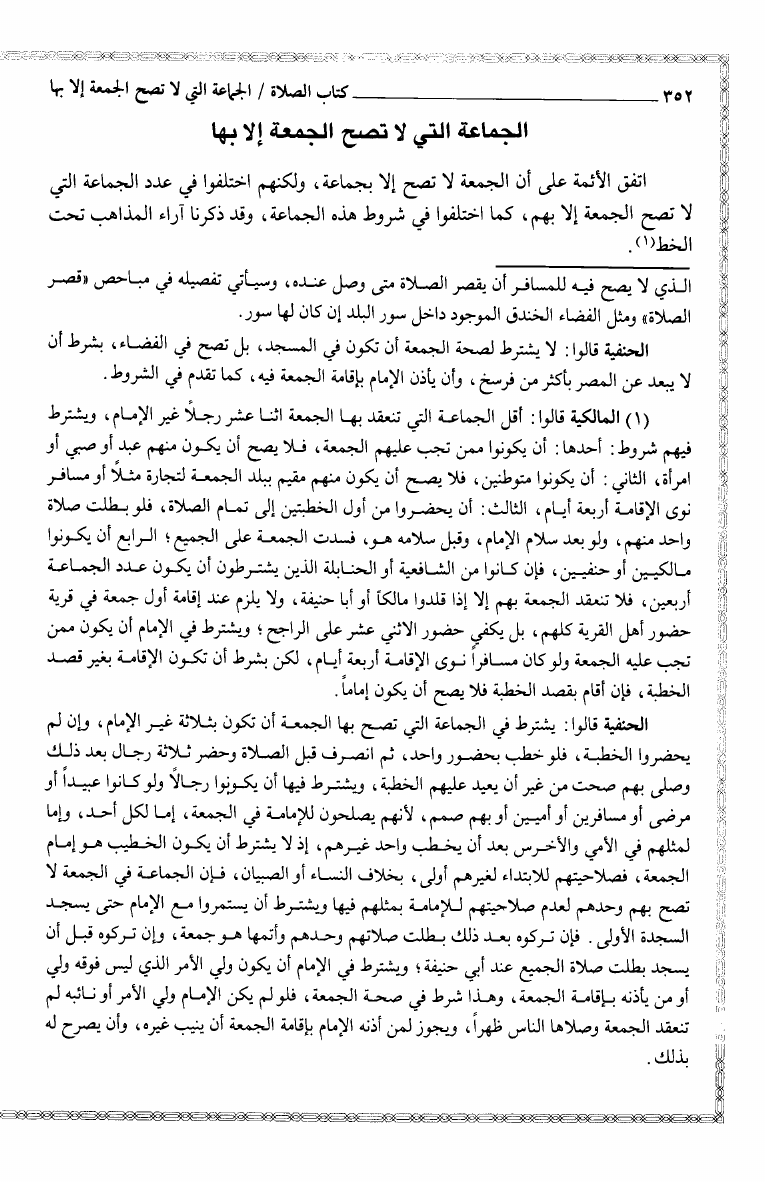 ٣٥٢ كتاب الصلاة / الجماعة التي لا تصح الجمعة إلا بها
الجماعة التي لا تصح الجمعة إلا بها
اتفق الأئمة على أن الجمعة لا تصح إلا بجماعة، ولكنهم اختلفوا في عدد الجماعة التي
لا تصح الجمعة إلا بهم، كما اختلفوا في شروط هذه الجماعة، وقد ذكرنا آراء المذاهب تحت
الخط(١).
الذي لا يصح فيه للمسافر أن يقصر الصلاة متى وصل عنده، وسيأتي تفصيله في مباحص «قصر
الصلاة» ومثل الفضاء الخندق الموجود داخل سور البلد إن كان لها سور.
الحنفية قالوا: لا يشترط لصحة الجمعة أن تكون في المسجد، بل تصح في الفضاء، بشرط أن
لا يبعد عن المصر بأكثر من فرسخ، وأن يأذن الإمام بإقامة الجمعة فيه، كما تقدم في الشروط.
(١) المالكية قالوا: أقل الجماعة التي تنعقد بها الجمعة اثنا عشر رجلاً غير الإمام، ويشترط
فيهم شروط: أحدها: أن يكونوا ممن تجب عليهم الجمعة، فلا يصح أن يكون منهم عبد أو صبي أو
امرأة، الثاني: أن يكونوا متوطنين، فلا يصح أن يكون منهم مقيم ببلد الجمعة لتجارة مثلاً أو مسافر
نوى الإقامة أربعة أيام، الثالث: أن يحضروا من أول الخطبتين إلى تمام الصلاة، فلو بطلت صلاة
واحد منهم، ولو بعد سلام الإمام، وقبل سلامه هو، فسدت الجمعة على الجميع؛ الرابع أن يكونوا
مالكيين أو حنفيين، فإن كانوا من الشافعية أو الحنابلة الذين يشترطون أن يكون عدد الجماعة
أربعين، فلا تنعقد الجمعة بهم إلا إذا قلدوا مالكاً أو أبا حنيفة، ولا يلزم عند إقامة أول جمعة في قرية
حضور أهل القرية كلهم، بل يكفي حضور الاثني عشر على الراجح؛ ويشترط في الإمام أن يكون ممن
تجب عليه الجمعة ولو كان مسافراً نوى الإقامة أربعة أيام، لكن بشرط أن تكون الإقامة بغير قصد
الخطبة، فإن أقام بقصد الخطبة فلا يصح أن يكون إماماً.
الحنفية قالوا: يشترط في الجماعة التي تصح بها الجمعة أن تكون بثلاثة غير الإمام، وإن لم
يحضروا الخطبة، فلو خطب بحضور واحد، ثم انصرف قبل الصلاة وحضر ثلاثة رجال بعد ذلك
وصلى بهم صحت من غير أن يعيد عليهم الخطبة، ويشترط فيها أن يكونوا رجالاً ولو كانوا عبيداً أو
مرضى أو مسافرين أو أميين أو بهم صمم، لأنهم يصلحون للإمامة في الجمعة، إما لكل أحد، وإما
لمثلهم في الأمي والأخرس بعد أن يخطب واحد غيرهم، إذ لا يشترط أن يكون الخطيب هو إمام
الجمعة، فصلاحيتهم للابتداء لغيرهم أولى، بخلاف النساء أو الصبيان، فإن الجماعة في الجمعة لا
تصح بهم وحدهم لعدم صلاحيتهم للإمامة بمثلهم فيها ويشترط أن يستمروا مع الإمام حتى يسجد
السجدة الأولى. فإن تركوه بعد ذلك بطلت صلاتهم وحدهم وأتمها هو جمعة، وإن تركوه قبل أن
يسجد بطلت صلاة الجميع عند أبي حنيفة؛ ويشترط في الإمام أن يكون ولي الأمر الذي ليس فوقه ولي
أو من يأذنه بإقامة الجمعة، وهذا شرط في صحة الجمعة، فلو لم يكن الإمام ولي الأمر أو نائبه لم
تنعقد الجمعة وصلاها الناس ظهراً، ويجوز لمن أذنه الإمام بإقامة الجمعة أن ينيب غيره، وأن يصرح له
بذلك.